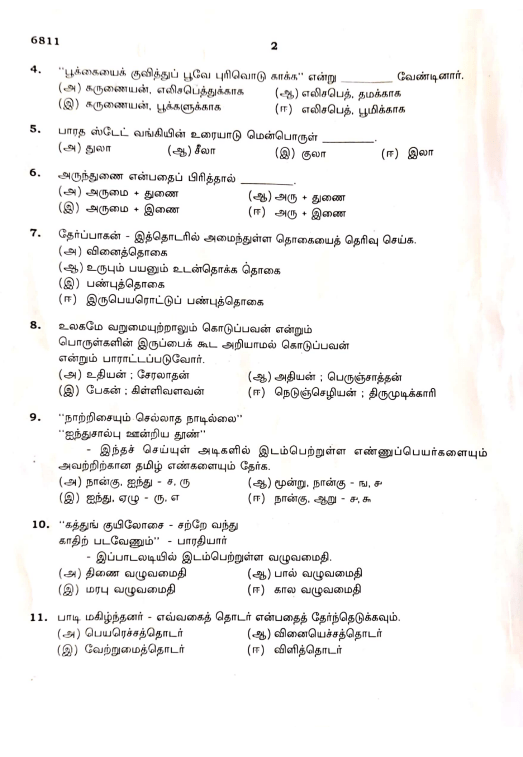 6811
2
4. "பூக்கையைக் குவித்துப் பூவே புரிவொடு காக்க" என்று ________ வேண்டினார்.
(அ) கருணையன், எலிசபெத்துக்காக (ஆ) எலிசபெத், தமக்காக
(இ) கருணையன், பூக்களுக்காக (ஈ) எலிசபெத், பூமிக்காக
5. பாரத ஸ்டேட் வங்கியின் உரையாடு மென்பொருள் ________.
(அ) துலா (ஆ) சீலா (இ) குலா (ஈ) இலா
6. அருந்துணை என்பதைப் பிரித்தால் ________.
(அ) அருமை + துணை (ஆ) அரு + துணை
(இ) அருமை + இணை (ஈ) அரு + இணை
7. தேர்ப்பாகன் - இத்தொடரில் அமைந்துள்ள தொகையைத் தெரிவு செய்க.
(அ) வினைத்தொகை
(ஆ) உருபும் பயனும் உடன்தொக்க தொகை
(இ) பண்புத்தொகை
(ஈ) இருபெயரொட்டுப் பண்புத்தொகை
8. உலகமே வறுமையுற்றாலும் கொடுப்பவன் என்றும்
பொருள்களின் இருப்பைக் கூட அறியாமல் கொடுப்பவன்
என்றும் பாராட்டப்படுவோர்.
(அ) உதியன் ; சேரலாதன் (ஆ) அதியன் ; பெருஞ்சாத்தன்
(இ) பேகன் ; கிள்ளிவளவன் (ஈ) நெடுஞ்செழியன் ; திருமுடிக்காரி
9. "நாற்றிசையும் செல்லாத நாடில்லை"
"ஐந்துசால்பு ஊன்றிய தூண்"
- இந்தச் செய்யுள் அடிகளில் இடம்பெற்றுள்ள எண்ணுப்பெயர்களையும்
அவற்றிற்கான தமிழ் எண்களையும் தேர்க.
(அ) நான்கு, ஐந்து - ௪, ௫ (ஆ) மூன்று, நான்கு - ௩, ௪
(இ) ஐந்து, ஏழு - ௫, ௭ (ஈ) நான்கு, ஆறு - ௪, ௬
10. "கத்துங் குயிலோசை - சற்றே வந்து
காதிற் படவேணும்" - பாரதியார்
- இப்பாடலடியில் இடம்பெற்றுள்ள வழுவமைதி.
(அ) திணை வழுவமைதி (ஆ) பால் வழுவமைதி
(இ) மரபு வழுவமைதி (ஈ) கால வழுவமைதி
11. பாடி மகிழ்ந்தனர் - எவ்வகைத் தொடர் என்பதைத் தேர்ந்தெடுக்கவும்.
(அ) பெயரெச்சத்தொடர் (ஆ) வினையெச்சத்தொடர்
(இ) வேற்றுமைத்தொடர் (ஈ) விளித்தொடர்